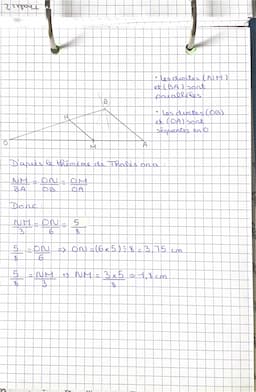 B
N
O
M
A
• Les droites (NM)
et (BA) sont
parallèles
• Les droites (OB)
et (OA) sont
séquentes en O
D'après le théorème de Thalès on a
NM/BA = ON/OB = OM/OA
Donc
NM/3 = ON/6 = 5/8
5/8 = ON/6 => ON = (6×5) : 8 = 3,75 cm
5/8 = NM/3 => NM = 3×5/8 = 1,8 cm